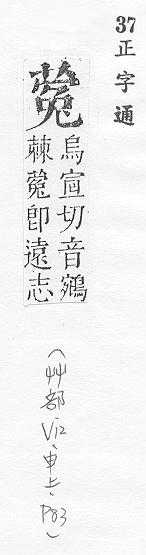 37正字通
蒬
烏宣切音鵷
棘蒬即遠志
(艸部、V12、申上、P83)